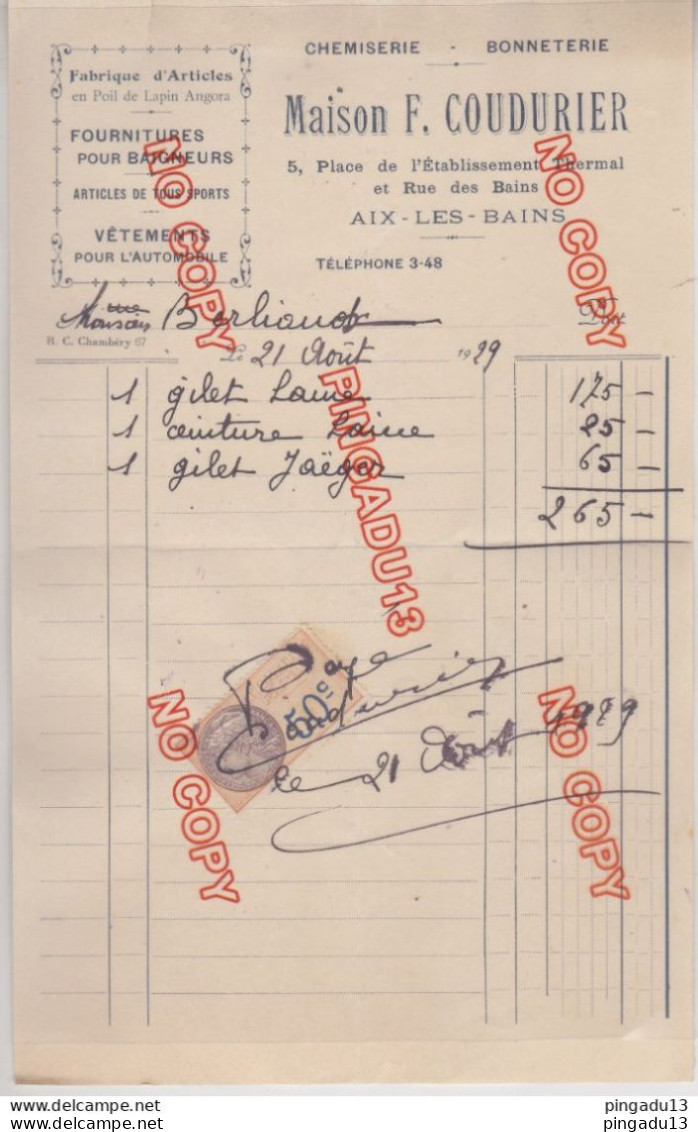 CHEMISERIE - BONNETERIE
Maison F. COUDURIER
5, Place de l'Établissement Thermal
et Rue des Bains
AIX-LES-BAINS
TÉLÉPHONE 3-48
Fabrique d'Articles
en Poil de Lapin Angora
FOURNITURES
POUR BAIGNEURS
ARTICLES DE TOUS SPORTS
VÊTEMENTS
POUR L'AUTOMOBILE
Doit
R. C. Chambéry 67
Le 21 Août 1929
1 gilet Laine 175 -
1 ceinture Laine 25 -
1 gilet Jaëger 65 -
265 -
50c
Payé
Coudurier
le 21 Août 1929
NO COPY
NO COPY
PINGADU13
NO COPY
NO COPY
pingadu13
pingadu13
pingadu13
pingadu13